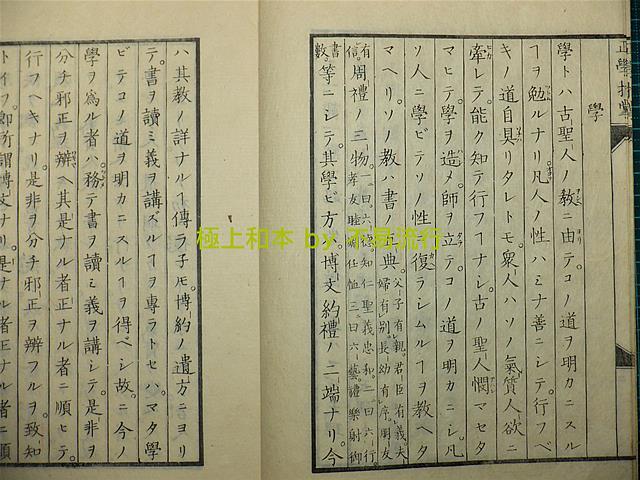 正學指掌
學
學トハ古聖人ノ教ニ由テコノ道ヲ明カニスル
ヿヲ勉ルナリ。凡人ノ性ハミナ善ニシテ行フベ
キノ道自具リタレトモ。衆人ハソノ氣質人欲ニ
牽レテ能ク知テ行フヿナシ。古ノ聖人憫マセタ
マヒテ學ヲ造メ師ヲ立テコノ道ヲ明カニシ。凡
ソ人ニ學ビテソノ性ニ復ラシムルヿヲ教ヘタ
マヘリ。ソノ教ハ書ノ五典父子有親。君臣有義。夫婦有別。長幼有序。朋友
有信。周禮ノ三物。一曰六德。知仁聖義忠和。二曰六行。孝友睦婣任恤。三曰六藝。禮樂射御
書數。等ニシテ其學ビ方ハ。博文約禮ノ二端ナリ。今
ハ其教ノ詳ナルヿ傳ラ子モ。博約ノ遺方ニヨリ
テ。書ヲ讀ミ義ヲ講ズルヿヲ專ラトセバ。マタ學
ビテコノ道ヲ明カニスルヿヲ得ベシ。故ニ今ノ
學ヲ爲ル者ハ。務テ書ヲ讀ミ義ヲ講シテ。是非ヲ
分チ邪正ヲ辨ヘ。其是ナル者正ナル者ニ順ヒテ。
行フヘキナリ。是非ヲ分チ邪正ヲ辨フルヲ。致知
トイフ。即所謂博文ナリ。是ナル者正ナル者ニ順
極上和本 by 不易流行